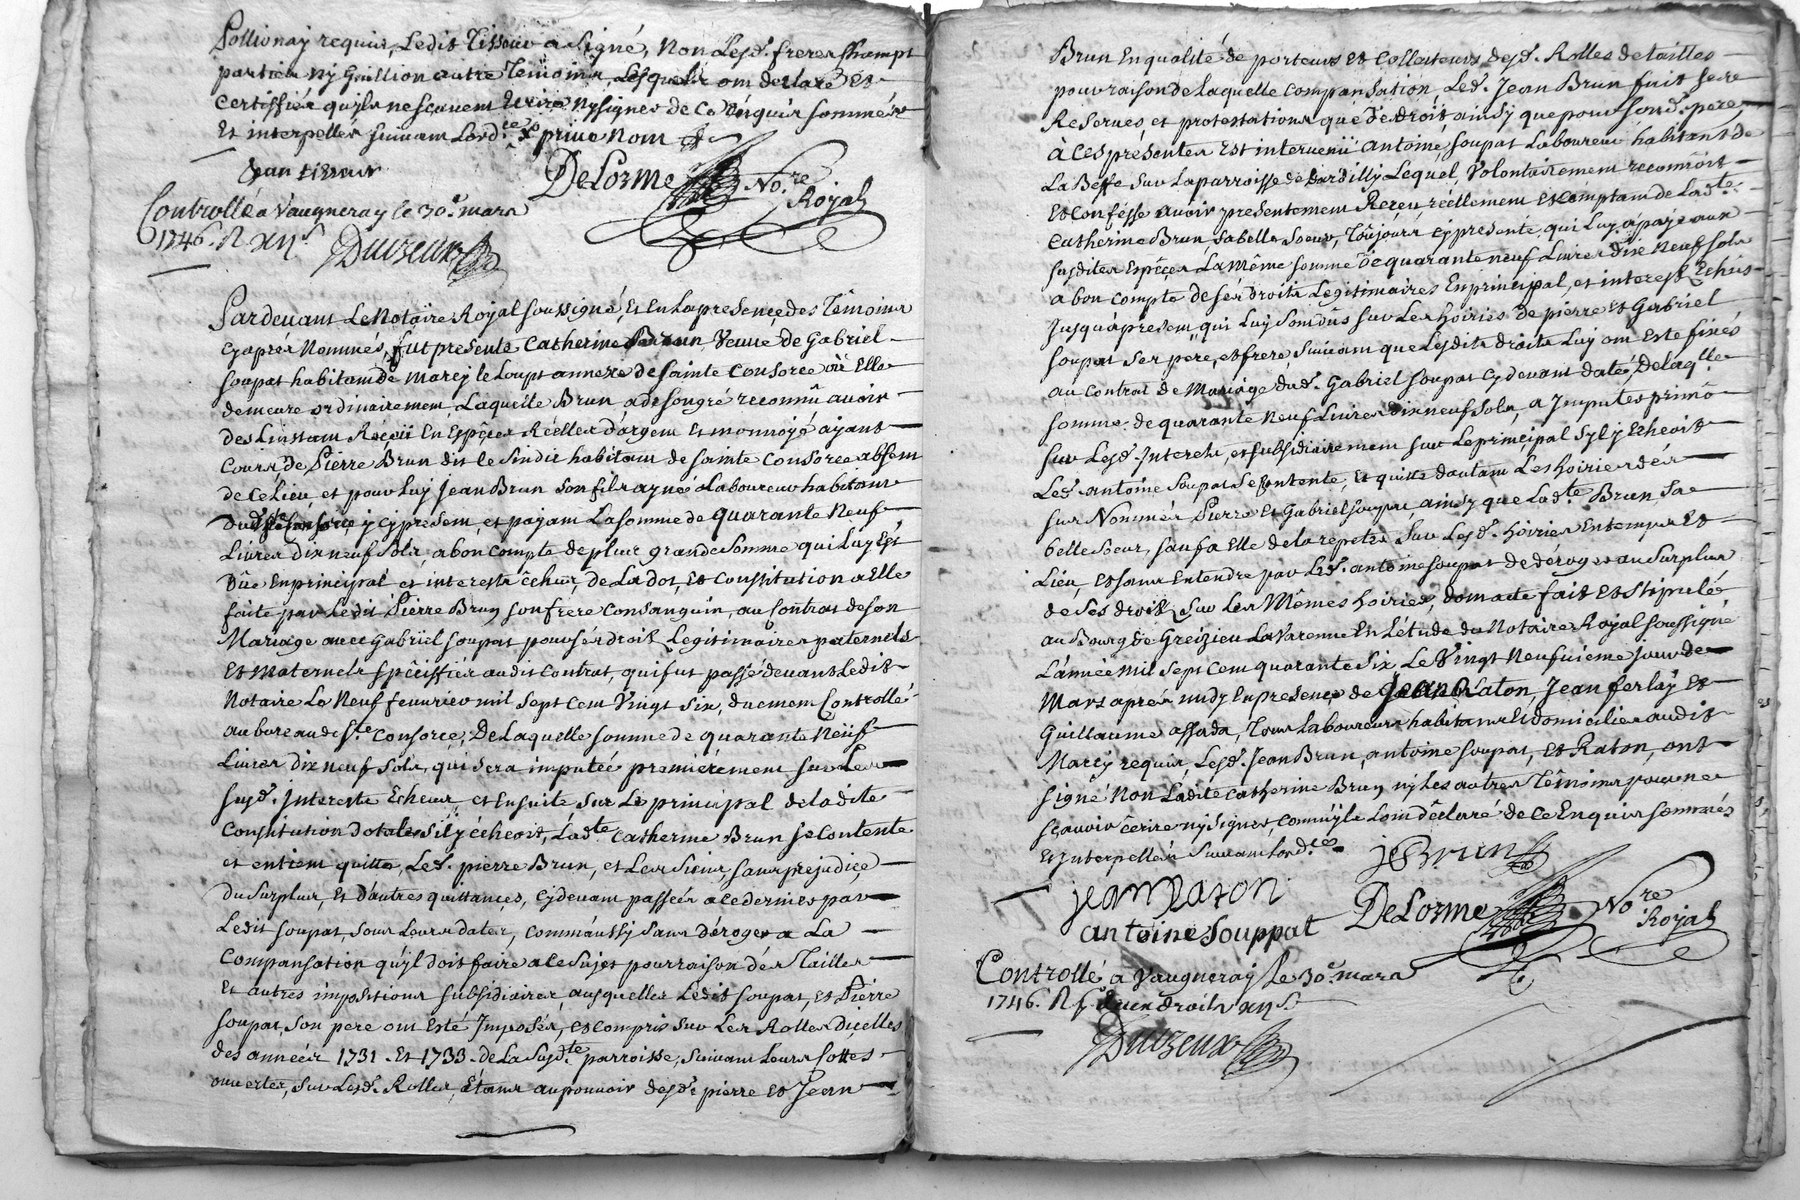 Pollionay requis, Ledit Tisseur a signé, Non Lesd. freres Champt
partier ny Guillion autre Temoins, Lesquels ont declaré et
certiffié quils ne sçavent Ecrire ny signer de ce Enquis sommés
Et interpellés suivant Lord.ce
Jean tisseur
DeLorme No.re Royal
Controllé a Vaugneray le 30.e mars
1746. R xij s.
Duvzeux
Pardevant Le Notaire Royal soussigné, Et En La presence des Témoins
Cy aprés Nommés, fut presente Catherine Brun Veuve de Gabriel
soupat habitante de Marcy le Loup annexe de sainte Consorce où Elle
demeure ordinairement Laquelle Brun a de son gré reconnû avoir
des Linstant Reçeu En Espéces Réelles d'argent Et monnoyé ayant
Cours de Pierre Brun dit le Sindic habitant de sainte Consorce absent
de Ce Lieu, et pour Luy Jean Brun son fils ayné Laboureur habitant
dud. Ste Consorce, y cy present, et payant La somme de quarante Neuf
Livres dix neuf sols, a bon compte de plus grande somme qui Luy Est
Düe En principal et interests êchus, de La dot, Et Constitution a Elle
faite par Ledit Pierre Brun son frere Consanguin, au Contrat de son
Mariage avec Gabriel soupat pour sés droits Legitimaires paternels
Et Maternels spéciffiés audit Contrat, qui fut passé devant Ledit
Notaire Le Neuf fevrier mil sept cent Vingt six, duement Controllé
au bureau de Ste Consorce, De Laquelle somme de quarante Neuf
Livres dix neuf sols, qui sera imputée premiérement sur Les
susd. Interests Echeus, et Ensuite sur Le principal de la dite
Constitution dotale s'il y écheoit, Lad.te Catherine Brun se Contente
et en tient quitte, Led. pierre Brun, et Les siens, sans prejudice
du surplus, Et d'autres quittances, Cy devant passées a ce dernier par
Ledit soupat, sous Leurs dates, comm'aussy sans déroger a La
Compansation qu'yl doit faire a ce sujet pour raison dés Tailles
Et autres impositions subsidiaires, ausquelles Ledit soupat, Et Pierre
soupat, son pere ont Esté Imposés, et compris sur Les Rolles d'icelles
des années 1731. Et 1733. de La susd.te parroisse, suivant Leurs Cottes
ouvertes, sur Lesd. Rolles, étants au pouvoir desd. pierre Et Jean
Brun En qualité de porteurs Et Collecteurs desd. Rolles de tailles
pour raison de laquelle Compansation, Led. Jean Brun fait sere
Reserves, et protestations que de droit, ainsy que pour sond. pere
à Ces presentes Est intervenü antoine soupat Laboureur habitant de
La Beffe sur La parroisse de Dardilly Lequel, Volontairement reconnoit
Et Confésse avoir presentement Reçeu réellement Et Comptant de Lad.te
Catherine Brun sa belle soeur, Toûjours cy presente, qui Luy a payé aux
susdites Espéces La même somme de quarante neuf Livres dix neuf sols
a bon compte de sés droits Legitimaires En principal, et interest Echus
jusqu'a present, qui Luy sont dûs sur Les hoiries de pierre Et Gabriel
soupat ses pere, et frere suivant que Lesdits droits Luy ont Esté fixés
au Contrat de Mariage dud. Gabriel soupat Cy devant daté, De laq.lle
somme de quarante Neuf Livres dix neuf sols, a Imputes primo
sur Lesd. Interets, et subsidiairement sur Le principal s'yl y Echeoit
Led. antoine soupat se Contente, Et quitte d'autant Les hoiries dés
sus Nommés Pierre Et Gabriel soupat ainsy que Lad.te Brun sa
belle soeur, sauf a Elle de la repeter sur Lesd. hoiries En temps Et
Lieu, Et sans Entendre par Led. antoine soupat de déroger au surplus
de Ses droits sur Les Mêmes hoiries, dont acte fait Et stipulé
au Bourg de Greizieu La Varenne En L'étude du Notaire Royal soussigné
L'année Mil sept cent quarante six Le Vingt Neufvieme jour de
Mars aprés midy En presence de Jean Raton, Jean ferlay Et
Guillaume assada, Tous Laboureurs habitants Et domiciliés audit
Marcy requis, Lesd. Jean Brun, antoine soupat, et Raton, ont
signé Non Ladite Catherine Brun ny Les autres Témoins pour ne
sçavoir écrire ny signer, comm'yls L'ont déclaré de ce Enquis sommés
Et Interpellés suivant Lord.ce
J Brun
jean Raton
antoine Souppat
DeLorme No.re Royal
Controllé a Vaugneray le 30.e mars
1746. R droits xij s.
Duvzeux